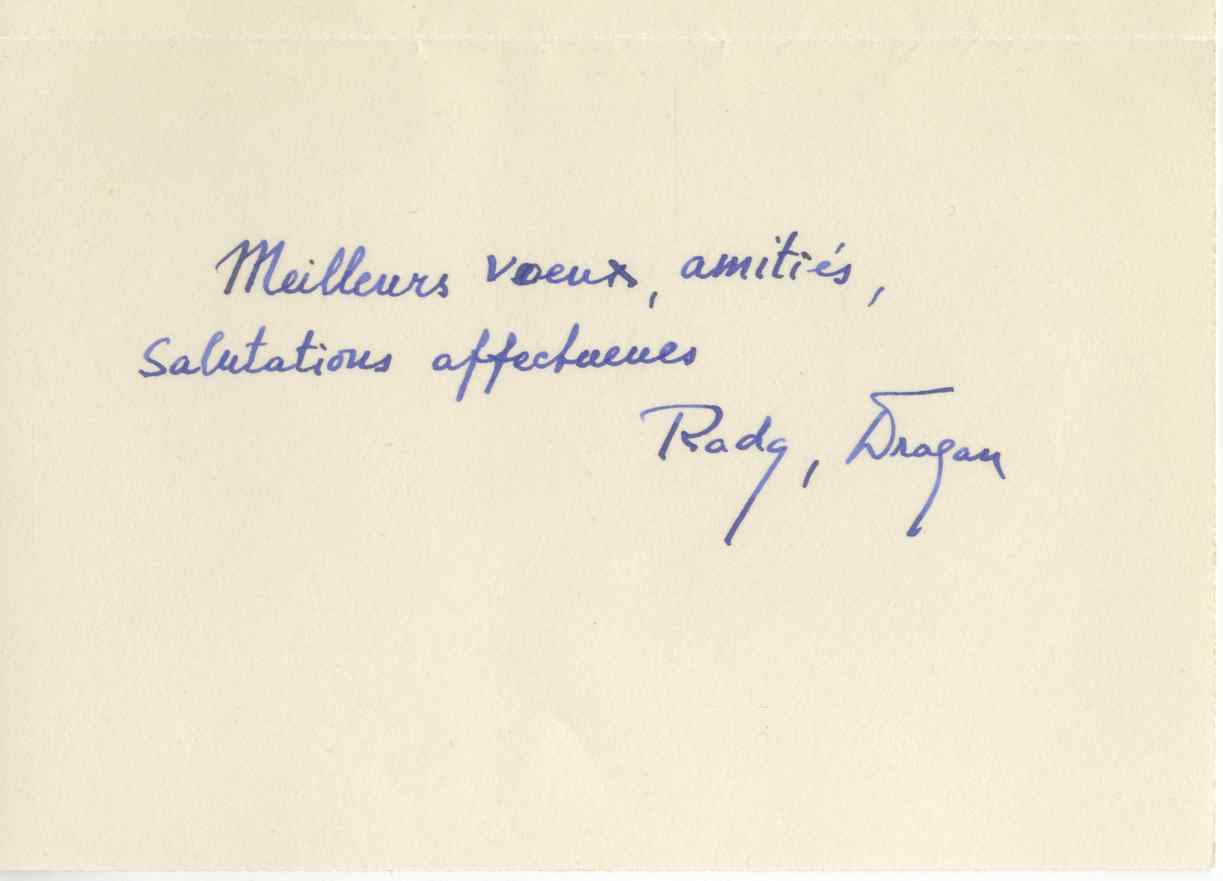 Meilleurs voeux, amitiés,
Salutations affectueuses
Rada, Dragan